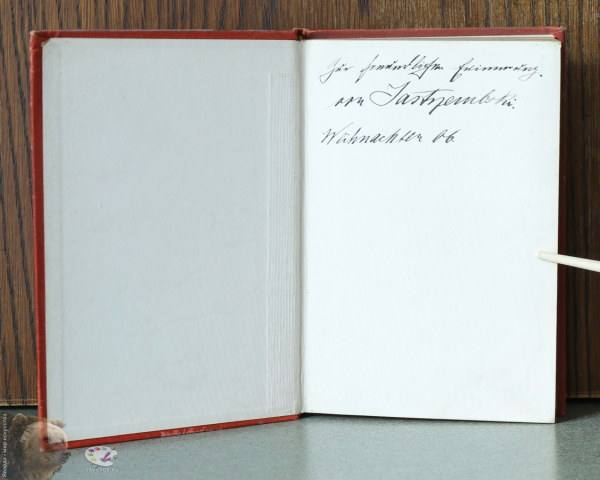 Zur freundlichen Erinnerung.
von Jastrzembski.
Weihnachten 06.